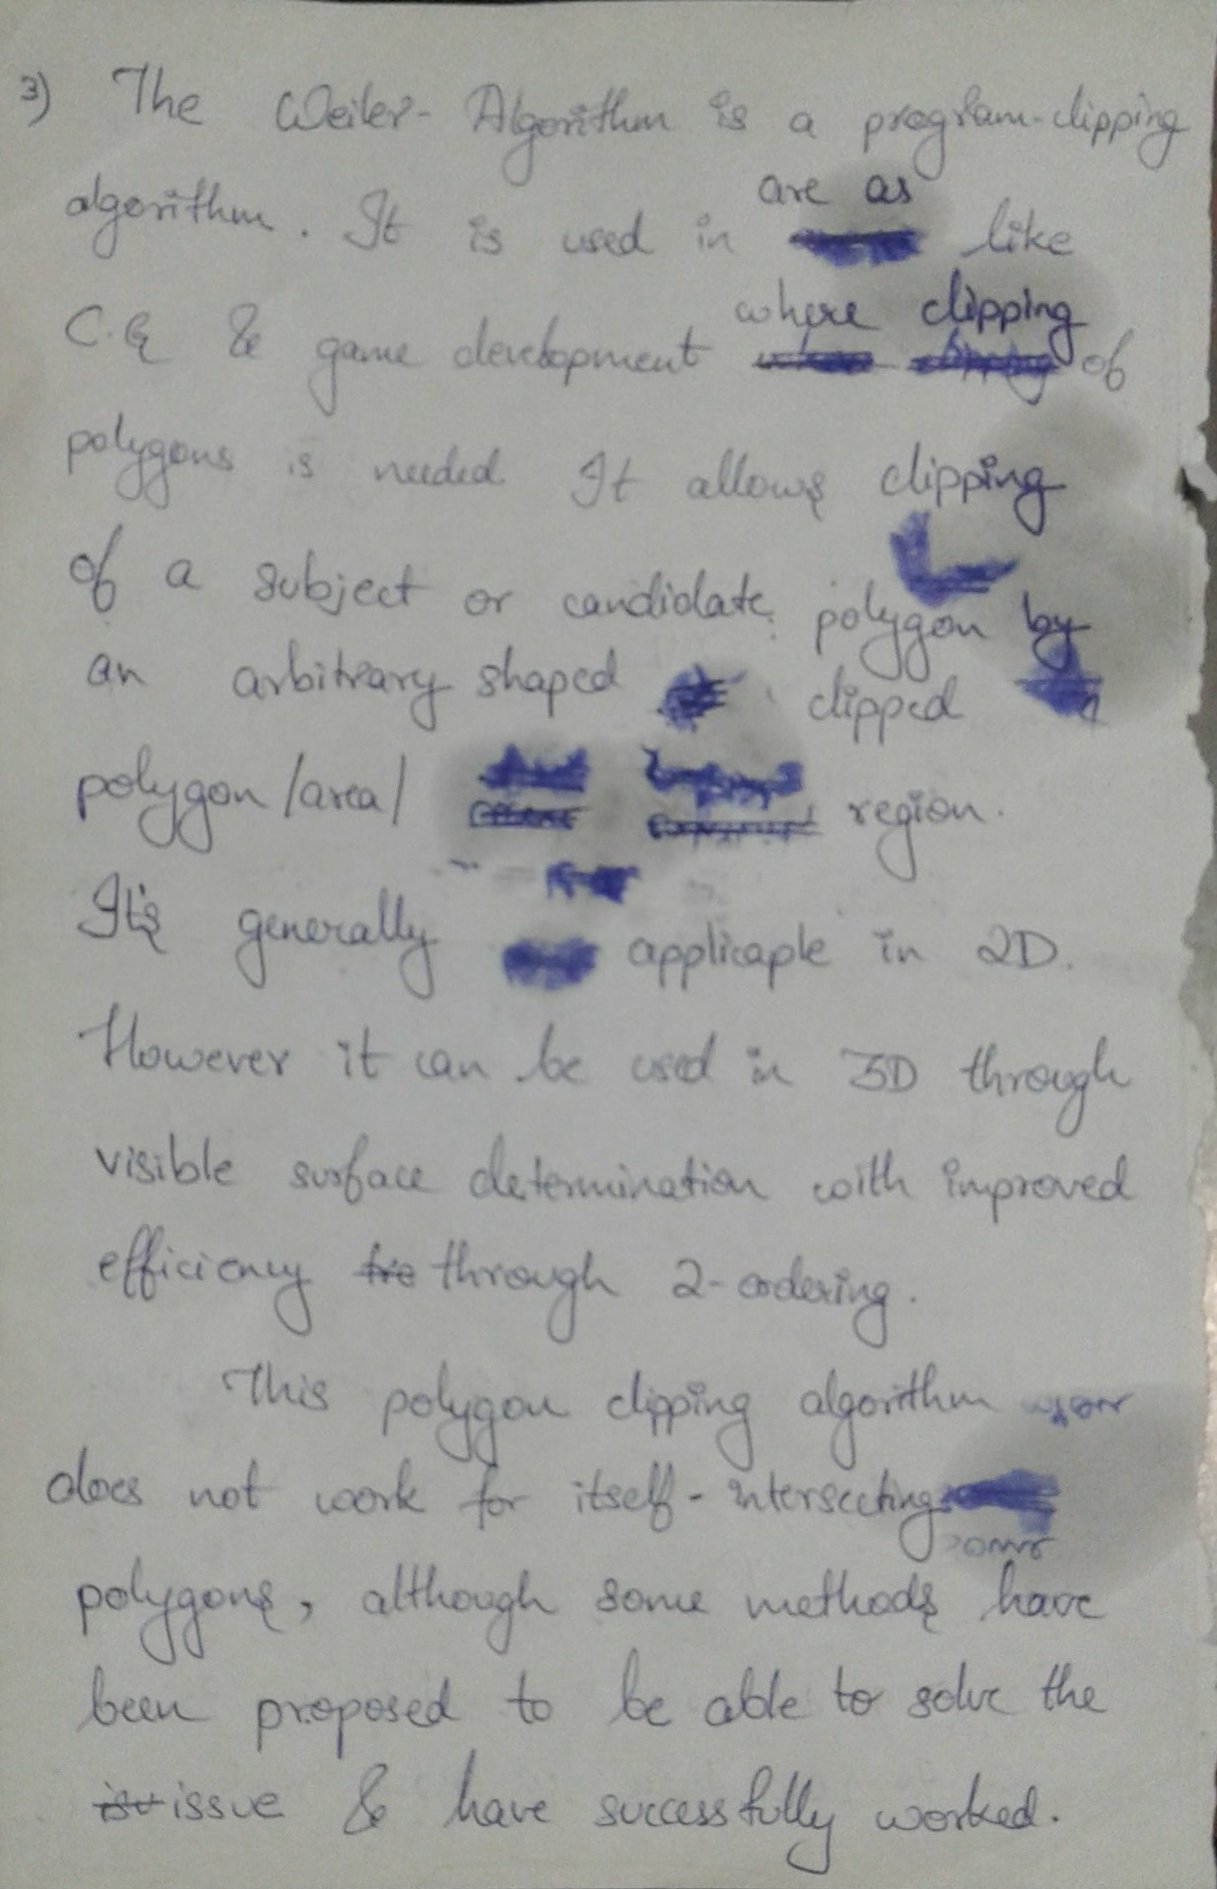 3) The Weiler-Algorithm is a program-clipping
algorithm. It is used in are as like
C.G & game development where clipping of
polygons is needed. It allows clipping
of a subject or candidate polygon by
an arbitrary shaped clipped
polygon/area/ region.
It's generally applicaple in 2D.
However it can be used in 3D through
visible surface determination with improved
efficiency through 2-ordering.
This polygon clipping algorithm
does not work for itself-intersecting
polygons, although some methods have
been proposed to be able to solve the
issue & have successfully worked.